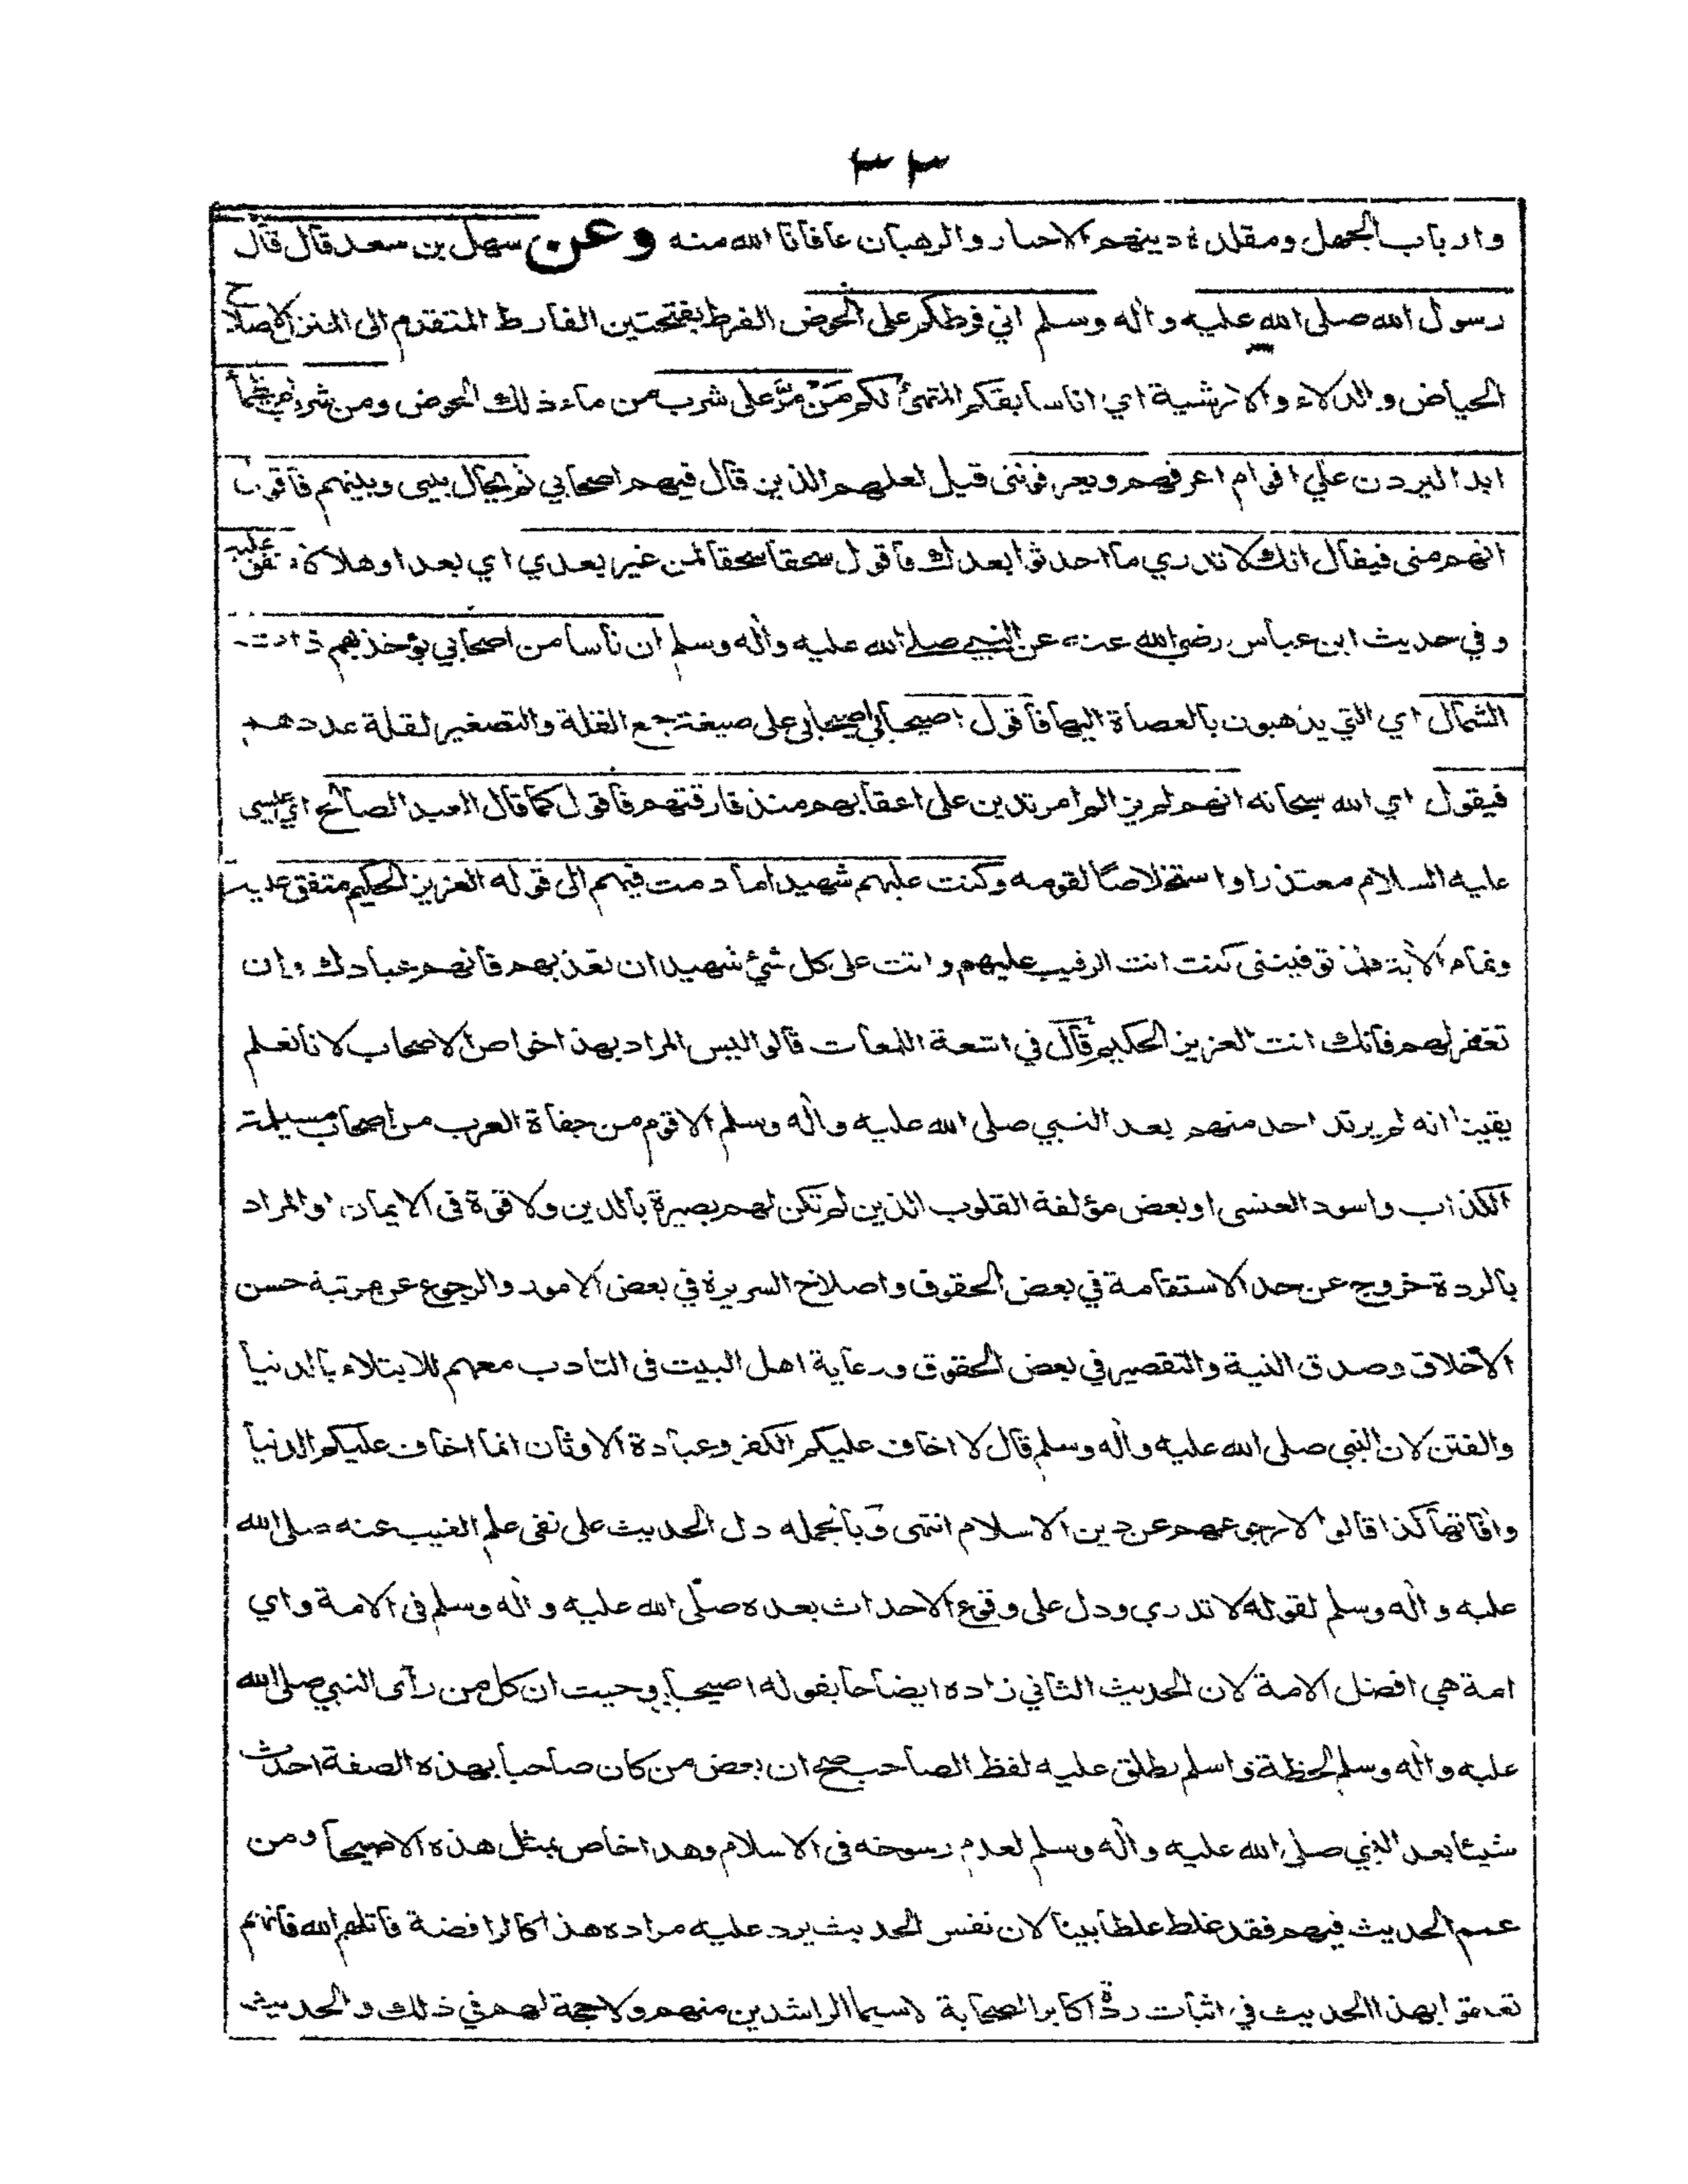 ٣٣
وارباب الجهل ومقلدة دينهم الاحبار والرهبان عافانا الله منه وعن سهل بن سعد قال قال
رسول الله صلى الله عليه واله وسلم اني فرطكم على الحوض الفرط بفتحتين الفارط المتقدم الى المنزل لاصلاح
الحياض والدلاء والارشية اي انا سابقكم المتهيئ لكم من مر على شرب من ماء ذلك الحوض ومن شرب لم يظمأ
ابدا ليردن علي اقوام اعرفهم ويعرفونني قيل لعلهم الذين قال فيهم اصحابي ثم يحال بيني وبينهم فاقول
انهم مني فيقال انك لا تدري ما احدثوا بعدك فاقول سحقا سحقا لمن غير بعدي اي بعدا وهلاكا متفق عليه
وفي حديث ابن عباس رضي الله عنه عن النبي صلى الله عليه واله وسلم ان ناسا من اصحابي يؤخذ بهم ذات
الشمال اي التي يذهبون بالعصاة اليها فاقول اصيحابي اصيحابي على صيغة جمع القلة والتصغير لقلة عددهم
فيقول اي الله سبحانه انهم لم يزالوا مرتدين على اعقابهم منذ فارقتهم فاقول كما قال العبد الصالح اي عيسى
عليه السلام معتذرا واستخلاصا لقومه وكنت عليهم شهيدا ما دمت فيهم الى قوله العزيز الحكيم متفق عليه
وتمام الاية فلما توفيتني كنت انت الرقيب عليهم وانت على كل شئ شهيد ان تعذبهم فانهم عبادك وان
تغفر لهم فانك انت العزيز الحكيم قال في اشعة اللمعات قالوا ليس المراد بهذا خواص الاصحاب لانا نعلم
يقينا انه لم يرتد احد منهم بعد النبي صلى الله عليه واله وسلم الا قوم من جفاة العرب من اصحاب مسيلمة
الكذاب واسود العنسى او بعض مؤلفة القلوب الذين لم تكن لهم بصيرة بالدين ولا قوة فى الايمان او المراد
بالردة خروج عن حد الاستقامة في بعض الحقوق واصلاح السريرة في بعض الامور والرجوع عن مرتبة حسن
الاخلاق وصدق النية والتقصير في بعض الحقوق ورعاية اهل البيت فى التادب معهم للابتلاء بالدنيا
والفتن لان النبي صلى الله عليه واله وسلم قال لا اخاف عليكم الكفر وعبادة الاوثان انما اخاف عليكم الدنيا
وافاتها كذا قالوا لا رجوعهم عن دين الاسلام انتهى وبالجمله دل الحديث على نفى علم الغيب عنه صلى الله
عليه واله وسلم لقوله لا تدري ودل على وقوع الاحداث بعده صلى الله عليه واله وسلم فى الامة واي
امة هي افضل الامة لان الحديث الثاني زاده ايضاحا بقوله اصيحابي وحيث ان كل من رآى النبي صلى الله
عليه واله وسلم لحظة واسلم يطلق عليه لفظ الصاحب صح ان بعض من كان صاحبا بهذه الصفة احدث
شيئا بعد النبي صلى الله عليه واله وسلم لعدم رسوخه فى الاسلام وهذا خاص بمثل هذه الاصيحاب ومن
عمم الحديث فيهم فقد غلط غلطا بينا لان نفس الحديث يرد عليه مراده هذا كالرافضة قاتلهم الله فانهم
تعمقوا بهذا الحديث في اثبات ردة اكابر الصحابة لاسيما الراشدين منهم ولا حجة لهم في ذلك والحديث